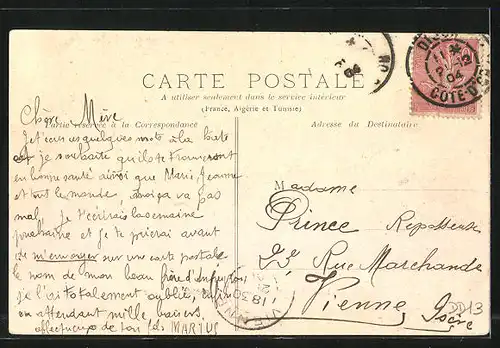 CARTE POSTALE
A utiliser seulement dans le service intérieur
(France, Algérie et Tunisie)
Partie réservée à la Correspondance
Adresse du Destinataire
Chère Mère
Je t'écris quelques mots à la hâte
et je souhaite qu'ils te trouveront
en bonne santé ainsi que Marie Jeanne
et tout le monde, moi ça va pas
mal, je t'écrirais la semaine
prochaine et je te prierai avant
de m'envoyer sur une carte postale
le nom de mon beau frère d'
je l'ai totalement oublié,
en attendant mille
affectueux de ton fils MARIUS
Madame
Prince Repasseuse
Rue Marchande
Vienne, Isère
DIJON
04
COTE D'OR
04
VIENNE
DD13